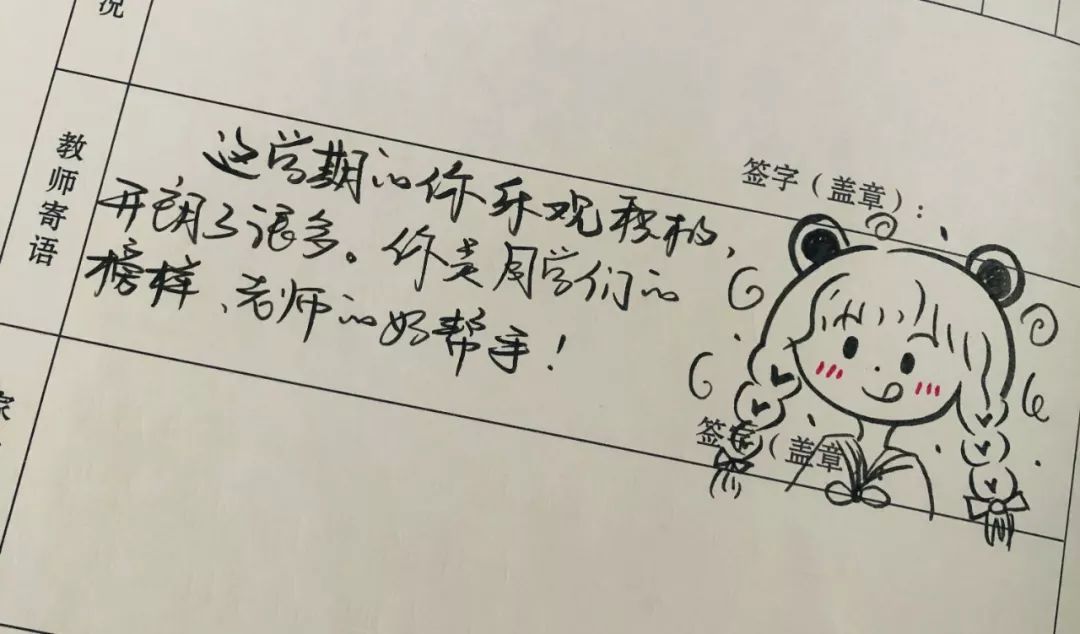 况
签字（盖章）：
教师寄语
这学期的你乐观积极，
开朗了很多。你是同学们的
榜样、老师的好帮手！
签字（盖章